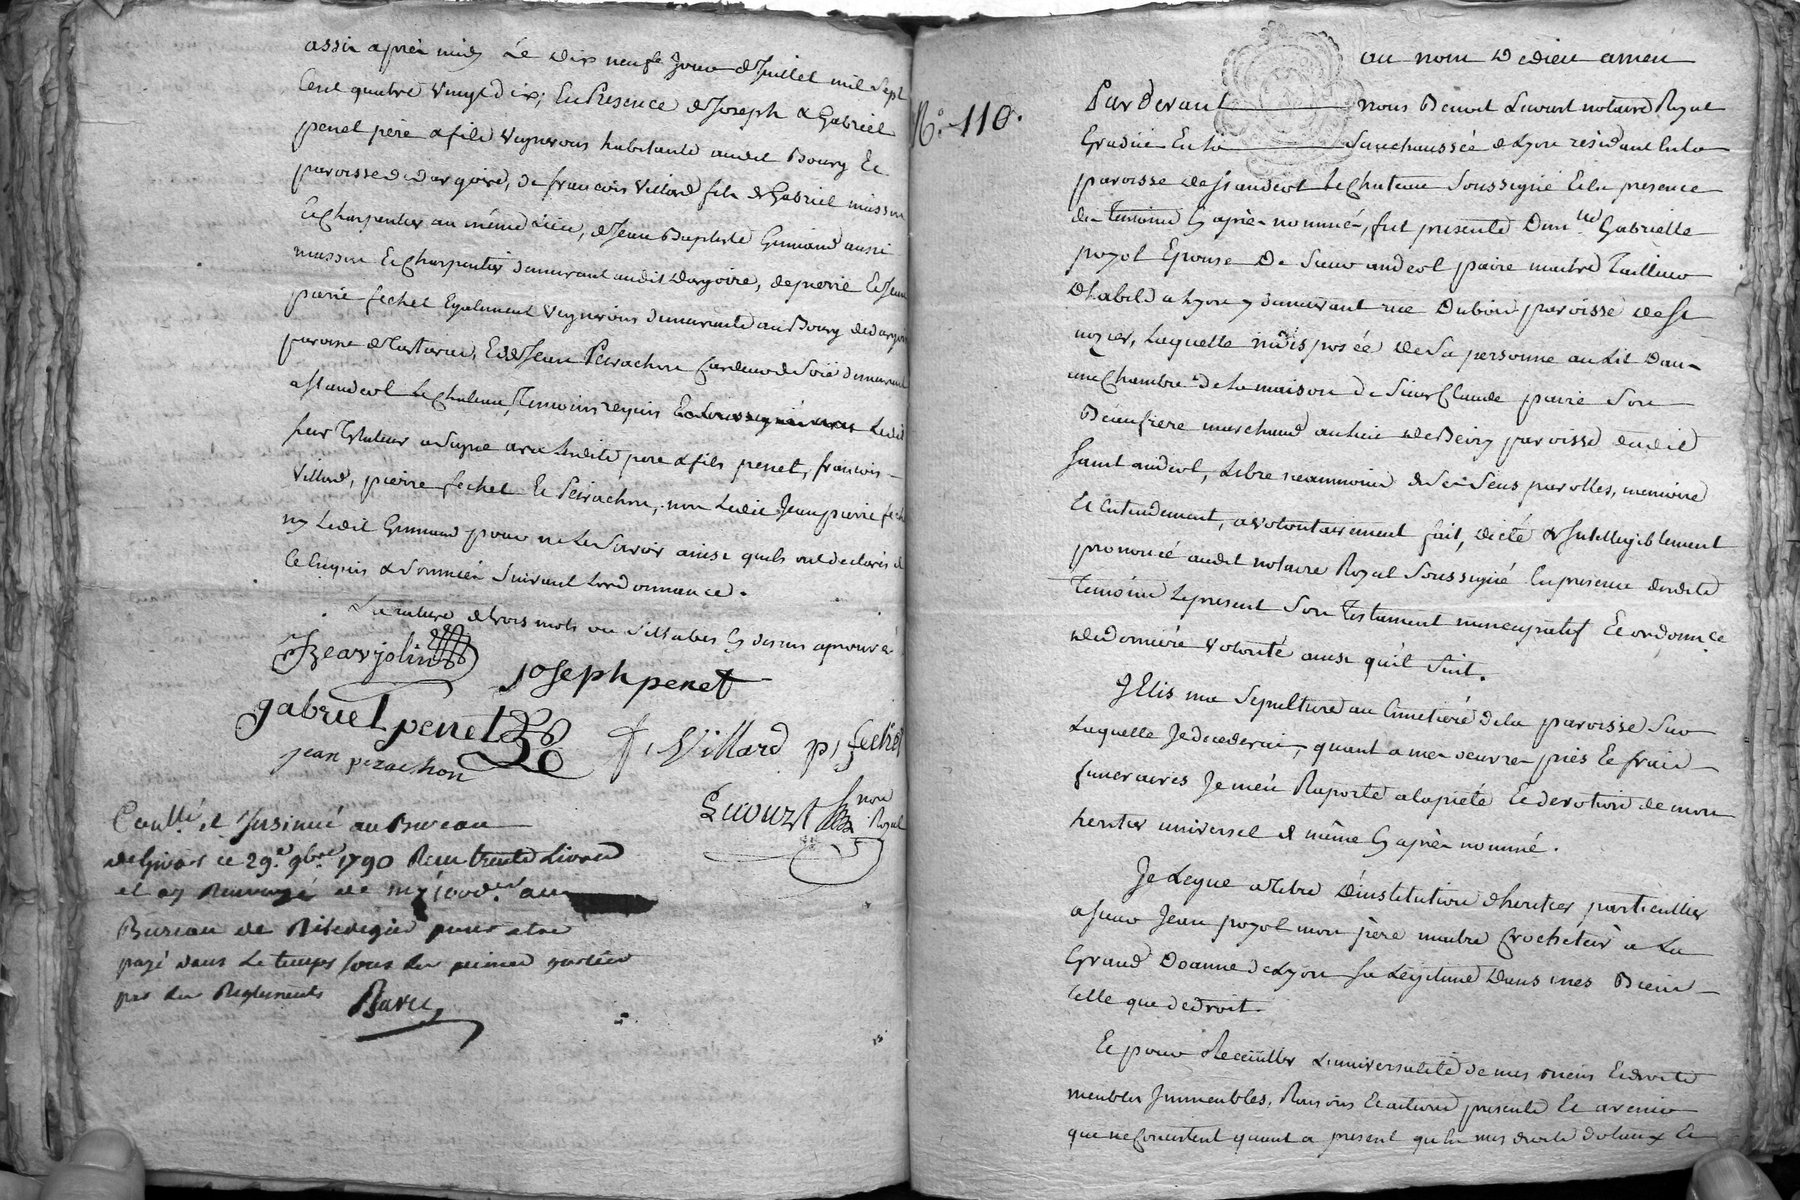 assis après midy Le dix neufe Jour de Juillet mil Sept
Cent quatre vingt dix, En Presence de Joseph & Gabriel
penet père & fils vignerons habitants audit Bourg Et
paroisse de dargoire, de francois villard fils de Gabriel masson
Et Charpentier au même Lieu, de Jean Baptiste Guinand aussi
masson Et Charpentier demeurant audit dargoire, de pierre Et Jean
pierre fechet Egalement vignerons demeurants au Bourg de dargoire
paroisse de tartaras, Et de Jean Peirachon Cardeur de Soie demeurant
a St andeol Le Chateau, Temoins requis Ledit
Sieur Testateur a Signé avec Lesdits pere & fils penet, francois
Villard, pierre fechet Et Peirachon, non Ledit Jean pierre fechet
ny Ledit Guinand pour ne Le Savoir ainsi quils ont declarés de
Ce Enquis & Sommés Suivant Lordonnance.
La rature de trois mots ou Sillabes Cy dessus aprouvée
Jzearjolin
Joseph penet
gabriel penet
f, Villard p, fechet
jean perachon
Lecourt nore Royal
Conllé, et Insinué au Bureau
de Givors ce 29e. 9bre 1790 Reçu trente Livres
et au
Bureau de Rivedegier pour etre
payé dans le temps sous les peines portées
par les Reglements
N.° 110.
au nom De dieu amen
Par Devant nous Benoit Lecourt notaire Royal
Gradué En la Senechaussée de Lyon résidant En la
paroisse de St andeol Le Chateau Soussigné Et En presence
des temoins Cy après nommés, fut presente Dam.lle Gabrielle
poyol Epouse De Sieur andeol paire maitre Tailleur
D'habits a Lyon y demeurant rue Dubois paroisse de St
nizier, Laquelle indisposée de Sa personne au Lit Dans
une Chambre de la maison de Sieur Claude paire Son
Beaufrere marchand au Lieu de paroisse dudit
Saint andeol, Libre neanmoins de Ses Sens parolles, memoire
Et Entendement, a volontairement fait, dicté & Intelligiblement
prononcé audit notaire Royal Soussigné En presence desdits
temoins Le present Son Testament nuncupatif Et ordonnce
de derniére volonté ainsi qu'il Suit.
J'Elis ma Sepulture au Cimetiére de la paroisse Sur
Laquelle Je decederai, quant a mes oeuvres pies Et frais
funeraires Je m'en Raporte a la piété Et devotion de mon
heritier universel de même Cy après nommé.
Je Legue a titre D'institution d'heritier particullier
a Sieur Jean poyol mon père maitre Crocheteur a La
Grand Doanne de Lyon Sa Legitime Dans mes Biens
telle que de droit.
Et pour Recceuillir L'universalité de mes Biens Et droits
meubles Immeubles, Raisons Et actions presents Et avenir
que ne Consistent quant a present qu'En mes droits dotaux Et